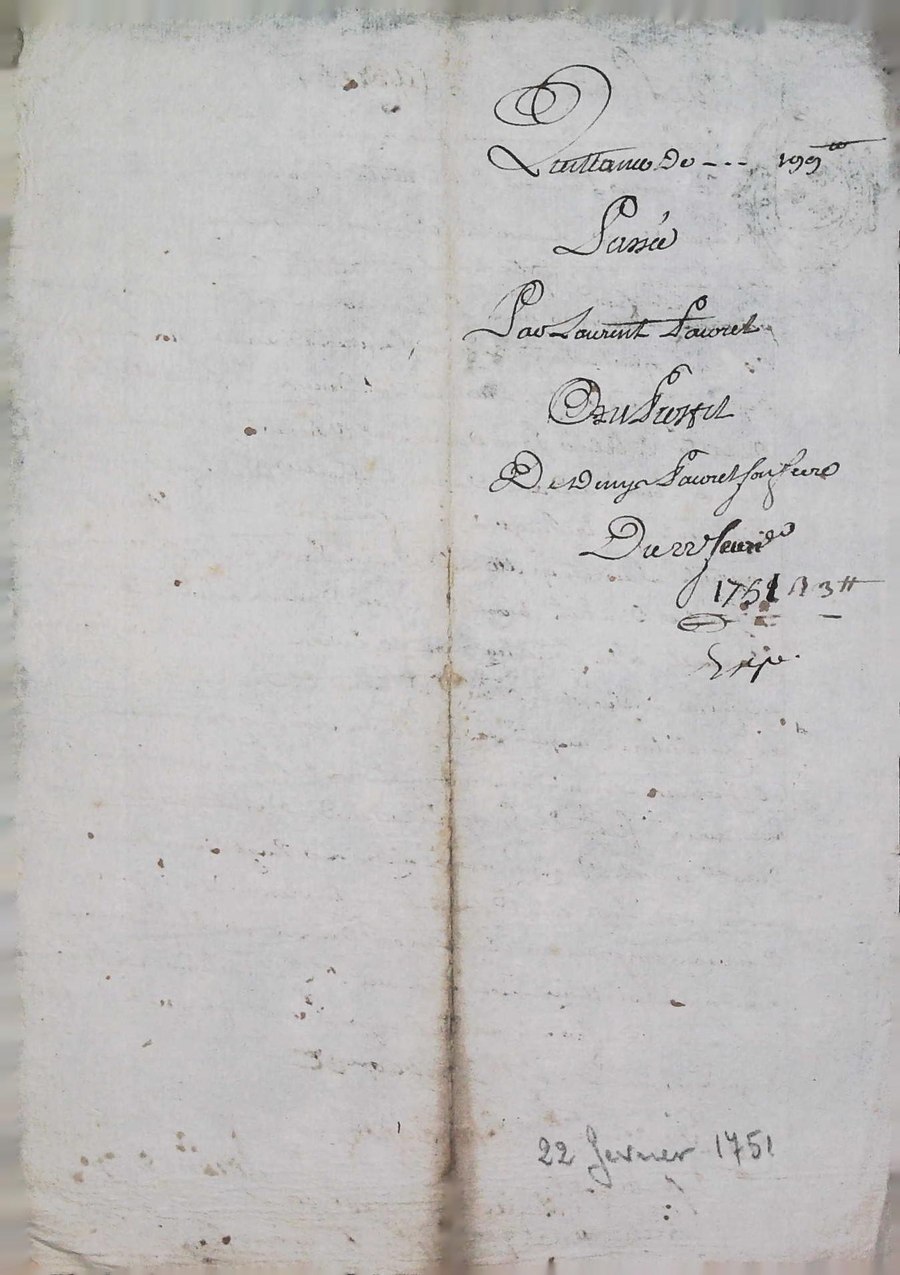 Quittance De --- 199
Passée
Par Laurent Favoret
Au Proffit
De Denys Favoret son frere
Du 22 fevrier
1751 R 3 tt
Exp.
22 fevrier 1751